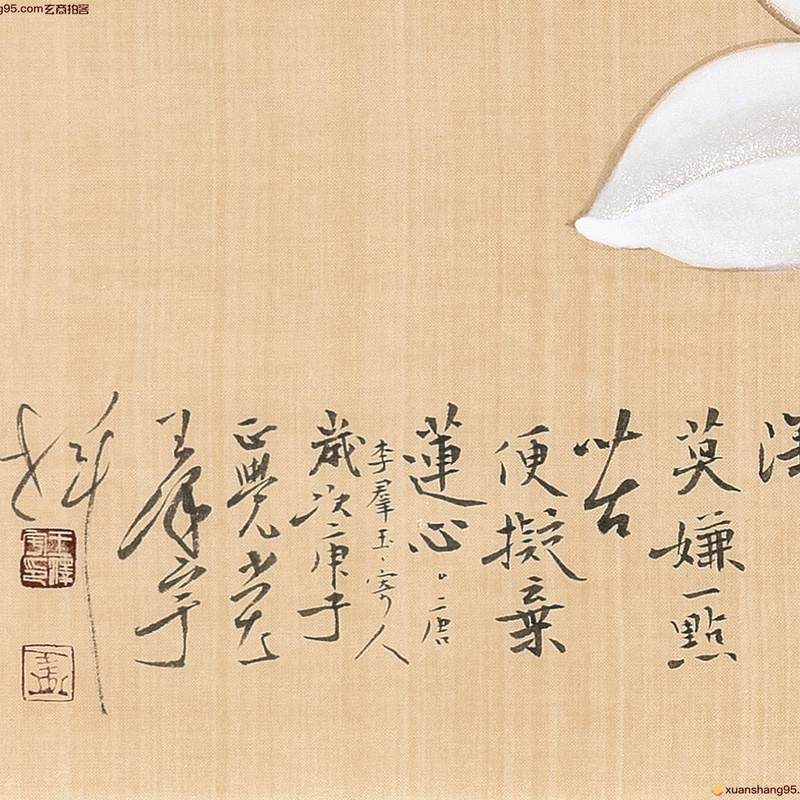 g95.com玄商拍客
莫嫌一點
苦
便擬棄
蓮心。唐
李羣玉、寄人
歲次庚子
正覺堂
xuanshang95.